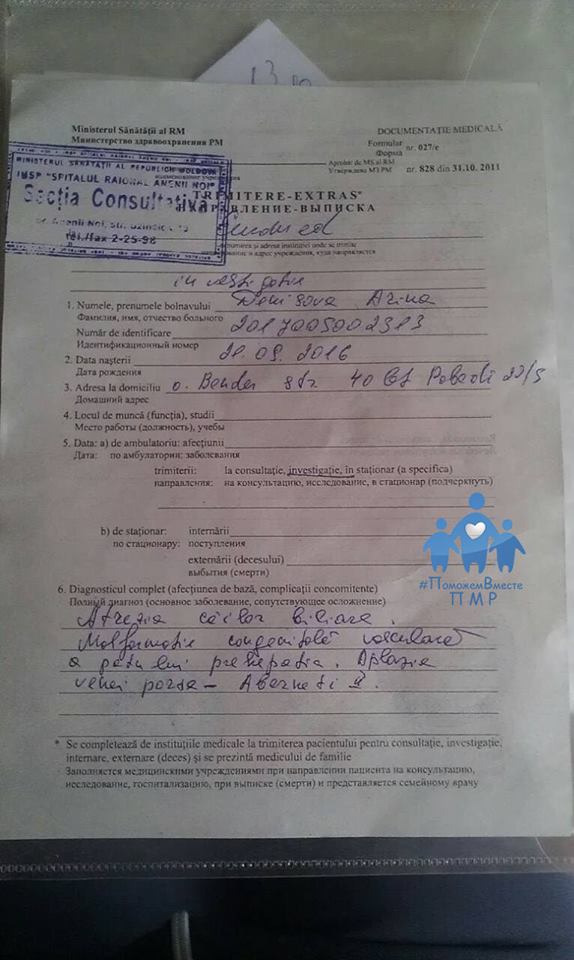 13
Ministerul Sănătății al RM
Министерство здравоохранения РМ
DOCUMENTAȚIE MEDICALĂ
Formular
Форма nr. 027/e
Aprobat de MS al RM
Утверждена МЗ РМ nr. 828 din 31.10.2011
MINISTERUL SĂNĂTĂȚII AL REPUBLICII MOLDOVA
IMSP "SPITALUL RAIONAL ANENII NOI"
Secția Consultativă
or. Anenii Noi, str. Uzinelor
tel./fax 2-25-98
TRIMITERE-EXTRAS*
НАПРАВЛЕНИЕ-ВЫПИСКА
denumirea și adresa instituției unde se trimite
наименование и адрес учреждения, куда направляется
investigație
1. Numele, prenumele bolnavului Denisova Arina
Фамилия, имя, отчество больного
Număr de identificare 2017005002313
Идентификационный номер
2. Data nașterii 21.09.2016
Дата рождения
3. Adresa la domiciliu o. Bender str 40 let Pobedi
Домашний адрес
4. Locul de muncă (funcția), studii
Место работы (должность), учебы
5. Data: a) de ambulatoriu: afecțiunii
Дата: по амбулатории: заболевания
trimiterii: la consultație, investigație, în staționar (a specifica)
направления: на консультацию, исследование, в стационар (подчеркнуть)
b) de staționar: internării
по стационару: поступления
externării (decesului)
выбытия (смерти)
#ПоможемВместе
ПМР
6. Diagnosticul complet (afecțiunea de bază, complicații concomitente)
Полный диагноз (основное заболевание, сопутствующее осложнение)
Atrezia căilor biliare.
Malformație congenitală vasculară
a patului prehepatic. Aplazia
venei porta - Aberneti II.
* Se completează de instituțiile medicale la trimiterea pacientului pentru consultație, investigație,
internare, externare (deces) și se prezintă medicului de familie
Заполняется медицинскими учреждениями при направлении пациента на консультацию,
исследование, госпитализацию, при выписке (смерти) и представляется семейному врачу